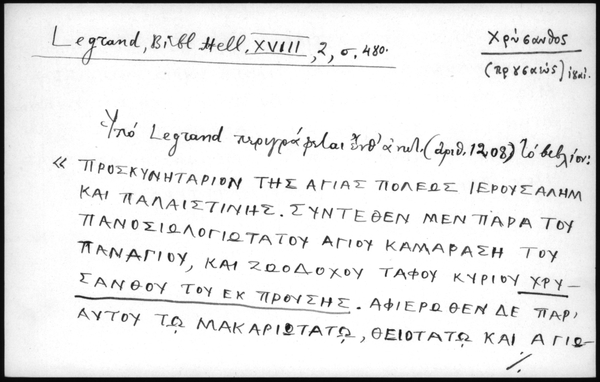 Legrand, Bibl. Hell, XVIII, 2, σ. 480.
Χρύσανθος
(προυσαεύς)
Ὑπό Legrand περιγράφεται ἔνθ' ἀνωτ. (ἀριθ. 1208) τό βιβλίον:
« ΠΡΟΣΚΥΝΗΤΑΡΙΟΝ ΤΗΣ ΑΓΙΑΣ ΠΟΛΕΩΣ ΙΕΡΟΥΣΑΛΗΜ
ΚΑΙ ΠΑΛΑΙΣΤΙΝΗΣ. ΣΥΝΤΕΘΕΝ ΜΕΝ ΠΑΡΑ ΤΟΥ
ΠΑΝΟΣΙΩΛΟΓΙΩΤΑΤΟΥ ΑΓΙΟΥ ΚΑΜΑΡΑΣΗ ΤΟΥ
ΠΑΝΑΓΙΟΥ, ΚΑΙ ΖΩΟΔΟΧΟΥ ΤΑΦΟΥ ΚΥΡΙΟΥ ΧΡΥ-
ΣΑΝΘΟΥ ΤΟΥ ΕΚ ΠΡΟΥΣΗΣ. ΑΦΙΕΡΩΘΕΝ ΔΕ ΠΑΡ'
ΑΥΤΟΥ Τῼ ΜΑΚΑΡΙΩΤΑΤῼ, ΘΕΙΟΤΑΤῼ ΚΑΙ ΑΓΙΩ-
./.